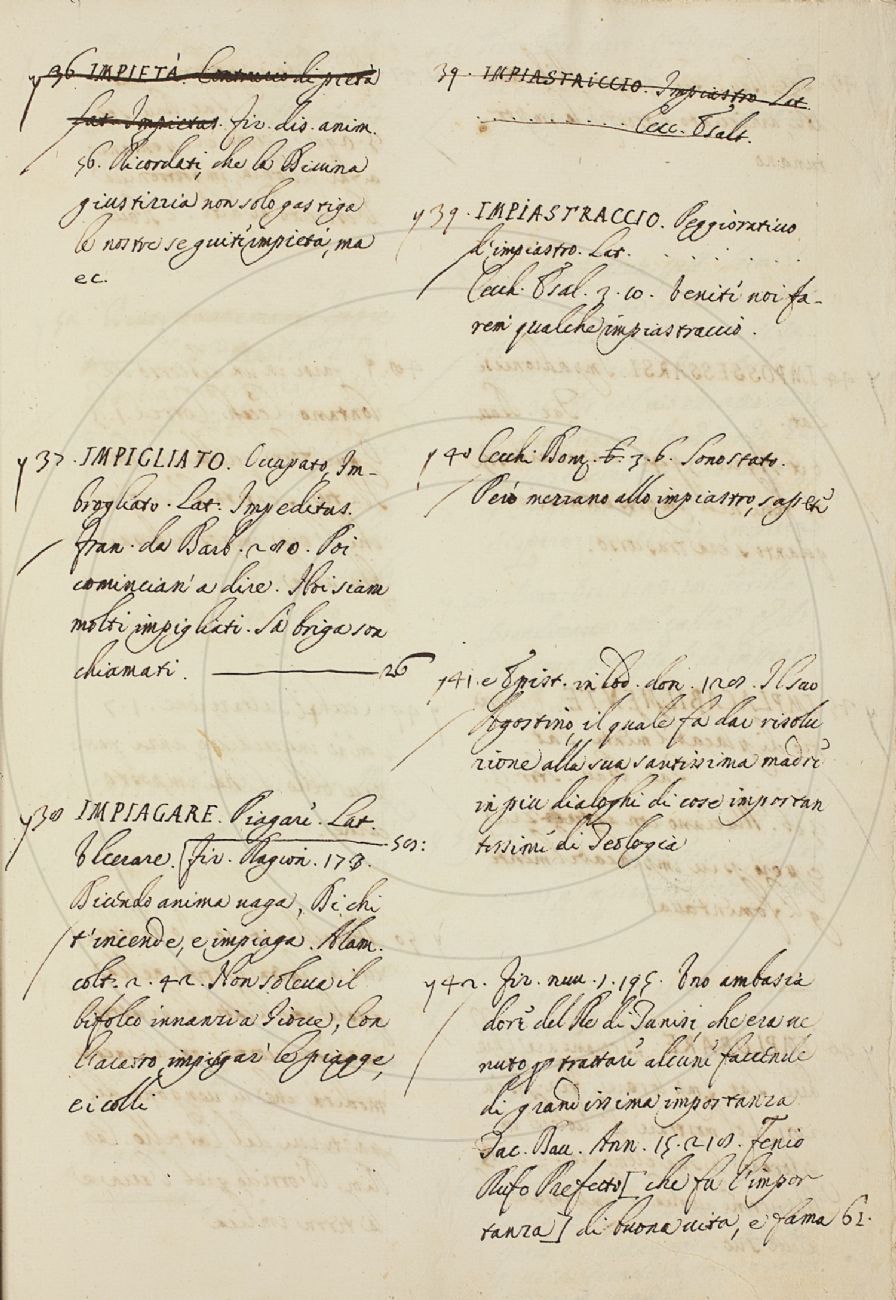 y 36 IMPIETÀ. Contrario di pietà
Lat. Impietas. fir. dis. anim.
56. Ricordati, che la Divina
giustizia non solo gastiga
le nostre seguite impietà, ma
ec.
y 37. IMPIGLIATO. Occupato, Im-
brogliato. Lat. Impeditus.
fran. da Barb. 280. Poi
comincian' a dire. Noi siam
molti impigliati. Sà briga son
chiamati. 26
y 38 IMPIAGARE. Piagare. Lat.
Ulcerare. [fir. Ragion. 178. 58:
Dicendo anima vaga, Di chi
t'incende, e impiaga. Alam.
colt. 2. 42. Non soleva il
bifolco innanzi a Giove, Con
l'aratro impiagar le piagge,
e i colli
39. IMPIASTRICCIO. Impiastro Lat.
. . . . . . . . . . Cecc. Esalt.
y 39. IMPIASTRACCIO. Peggiorativo
d'impiastro. Lat. . . . . . .
Cecch. Esal. 3. 10. Venite noi fa-
rem qualche impiastraccio.
y 40 Cecch. Donz. 3. 6. Sono stato.
Però mezzano allo impiastro,
y 41. e Epist. in lod. don. 128. Il suo
Agostino, il quale fa dar risolu
zione alla sua santissima madre
in piu dialoghi di cose importan
tissime di Teologia
y 42. fir. nuu. 1. 195. Uno ambascia
dore del Re di Tunisi che era ve
nuto p trattare alcune faccende
di grandissima importanza
Tac. Dav. Ann. 15. 218. Fenio
Rufo Prefetto [che fu l'impor
tanza] di buona vita, e fama 61.